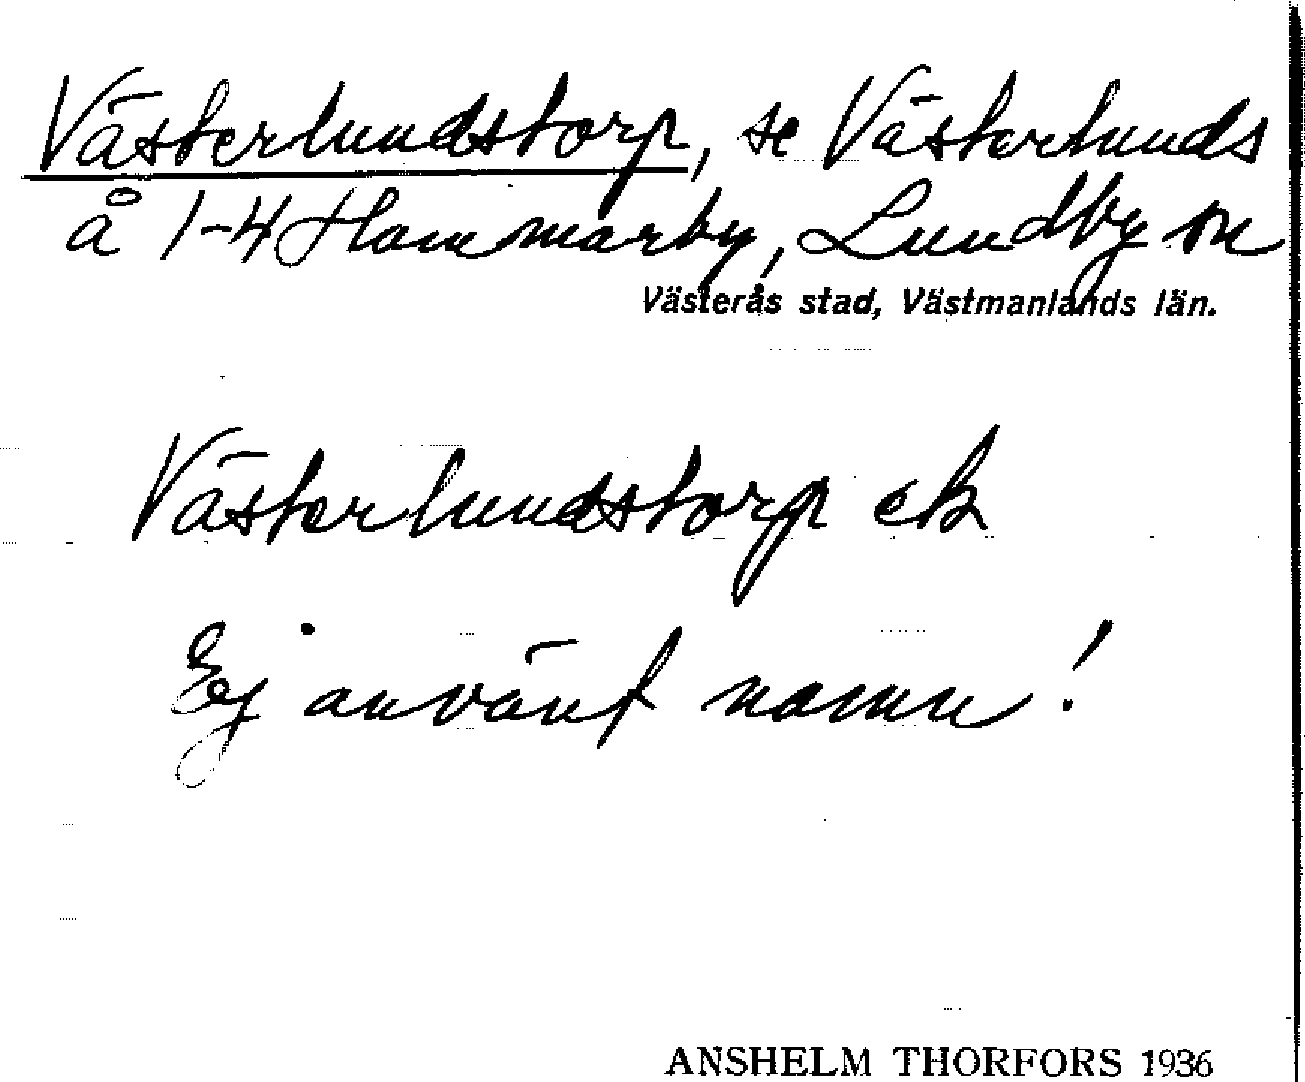 Västerlundstorp, se Västerlunds
å 1-4 Hammarby, Lundby sn
Västerås stad, Västmanlands län.
Västerlundstorp ek
Ej använt namn!
ANSHELM THORFORS 1936